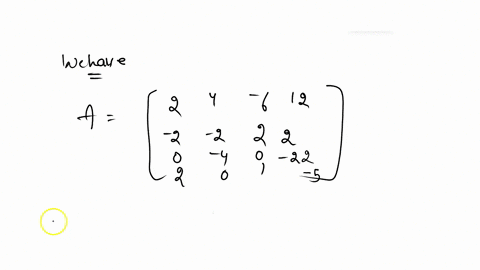 We have
A =
2 4 -6 12
-2 -2 2 2
0 -4 0 -22
2 0 1 -5